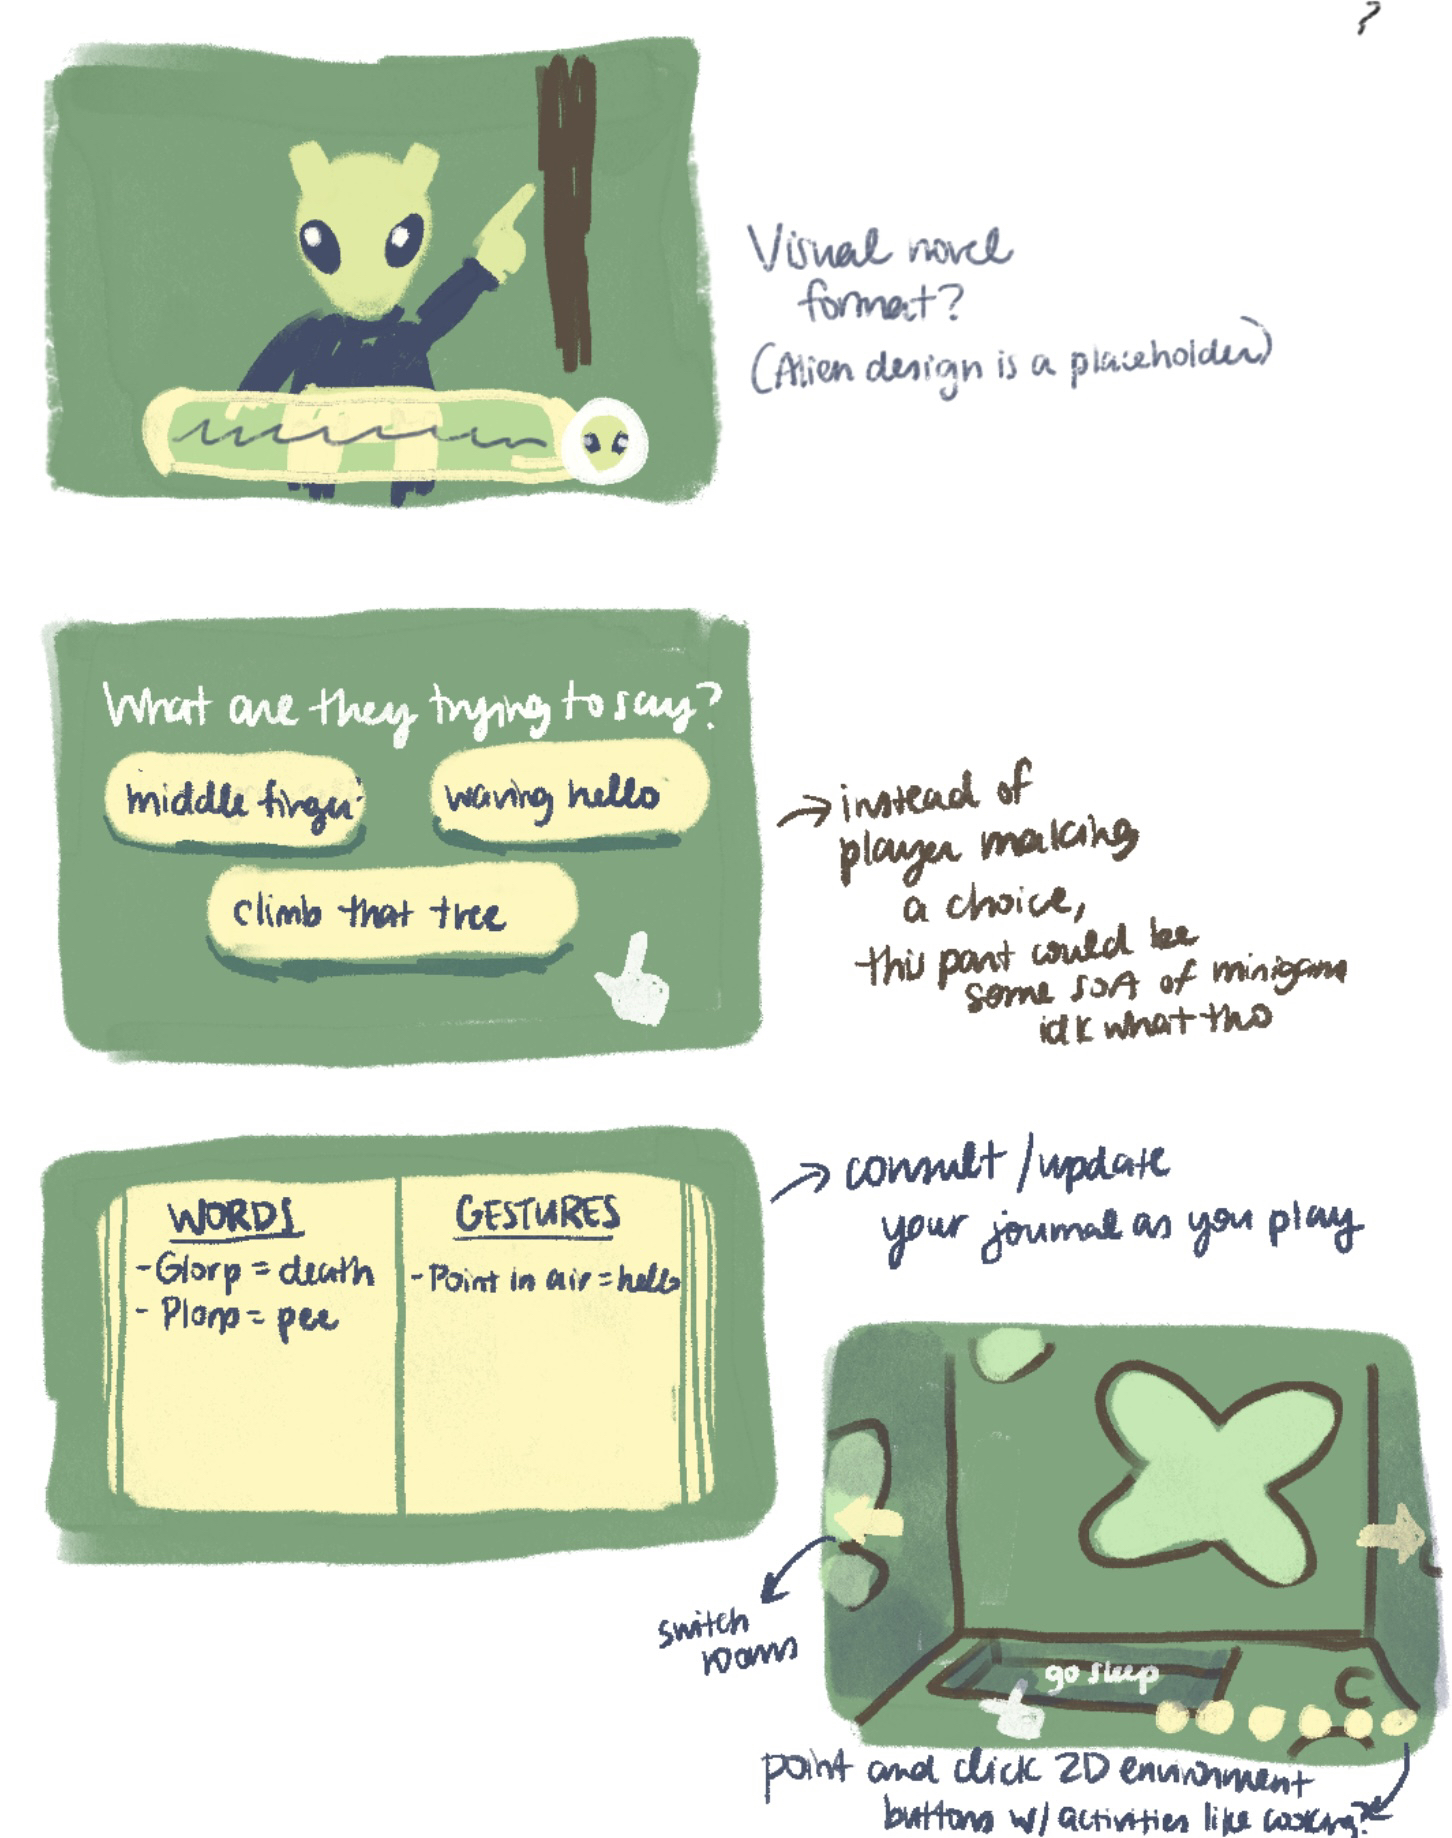 ?
Visual novel
format?
(Alien design is a placeholder)
What are they trying to say?
middle finger
waving hello
climb that tree
→ instead of
player making
a choice,
this part could be
some sort of minigame
idk what tho
WORDS
- Glorp = death
- Plorp = pee
GESTURES
- Point in air = hello
→ consult / update
your journal as you play
switch
rooms
go sleep
point and click 2D environment
buttons w/ activities like cooking?